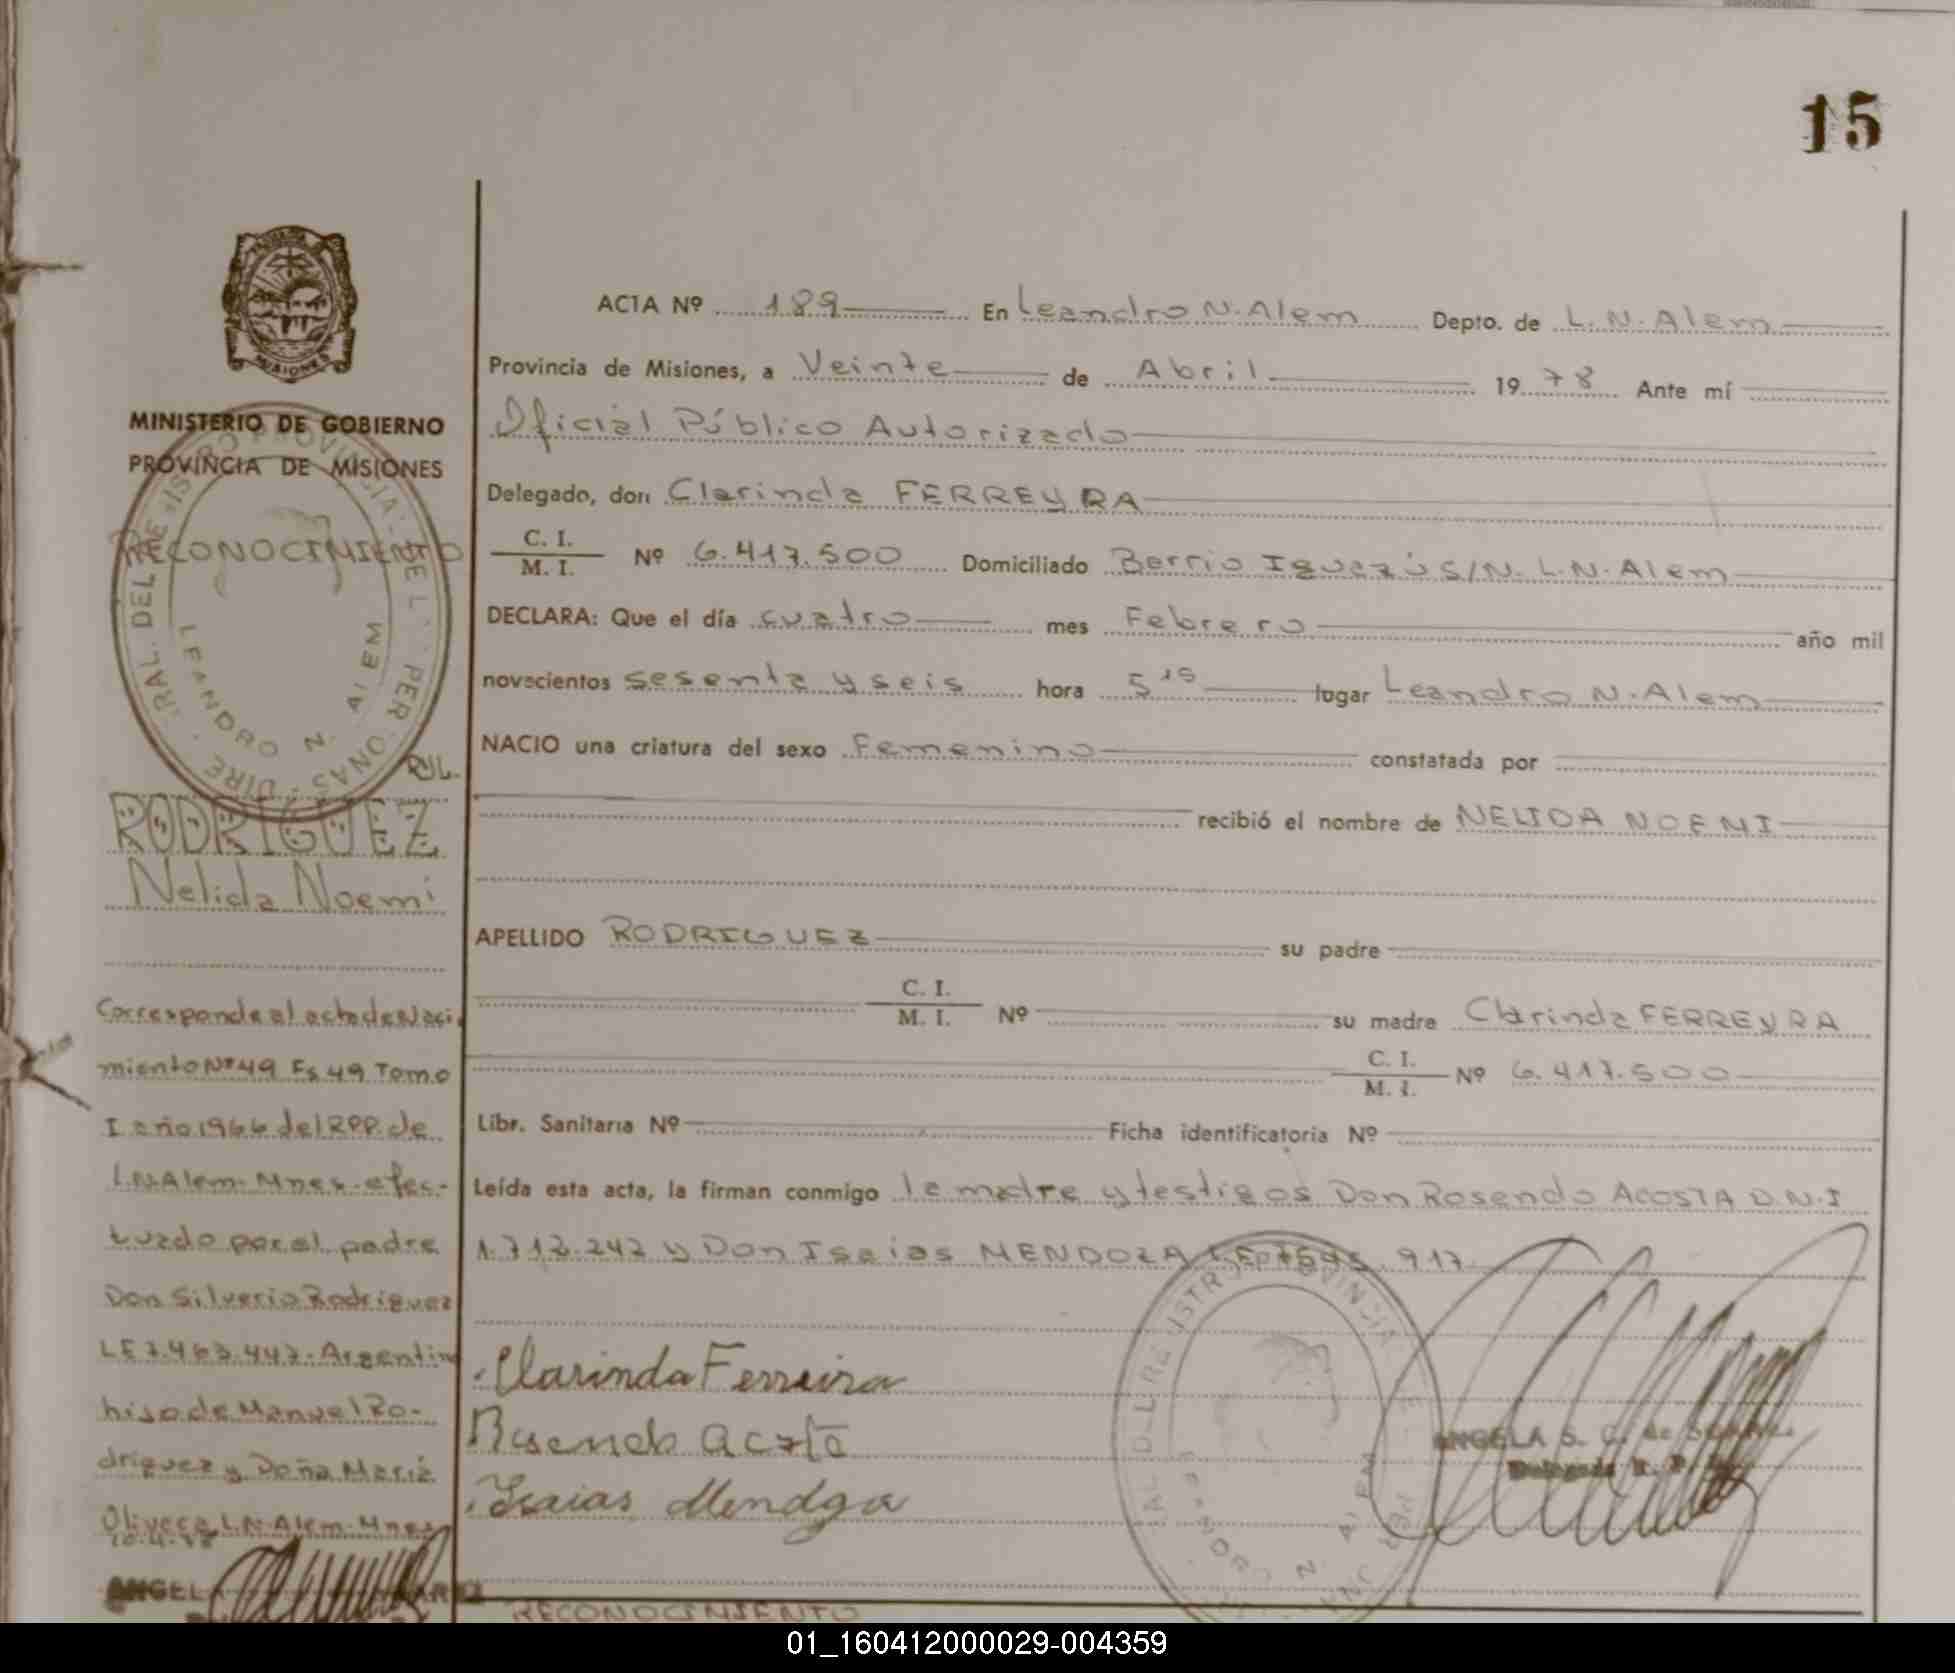 15
MINISTERIO DE GOBIERNO
PROVINCIA DE MISIONES
RECONOCIMIENTO
LEANDRO N. ALEM
RODRIGUEZ
Nelida Noemi
Corresponde al acta de Naci
miento Nº 49 Fs 49 Tomo
I año 1966 del RPP. de
L.N. Alem - Mnes - efec-
tuado por el padre
Don Silverio Rodriguez
LE 7.463.447 - Argentino
hijo de Manuel Ro-
driguez y Doña Maria
Olivera L.N. Alem - Mnes
ANGEL
ACTA Nº 189 En Leandro N. Alem Depto. de L. N. Alem
Provincia de Misiones, a Veinte de Abril 1978 Ante mí
Oficial Público Autorizado
Delegado, don Clarinda FERREYRA
C. I.
M. I. Nº 6.417.500 Domiciliado Barrio Iguazú S/N. L.N. Alem
DECLARA: Que el día cuatro mes Febrero año mil
novecientos sesenta y seis hora 5 15 lugar Leandro N. Alem
NACIO una criatura del sexo Femenino constatada por
recibió el nombre de NELIDA NOEMI
APELLIDO RODRIGUEZ su padre
C. I.
M. I. Nº su madre Clarinda FERREYRA
C. I.
M. I. Nº 6.417.500
Libr. Sanitaria Nº Ficha identificatoria Nº
Leída esta acta, la firman conmigo la madre y testigos Don Rosendo ACOSTA D.N.I
1.712.242 y Don Isaias MENDOZA 917
Clarinda Ferreira
Rosendo Acosta
Isaias Mendoza
ANGELA S. C. de
Delegada R. P.
RECONOCIMIENTO
01_160412000029-004359